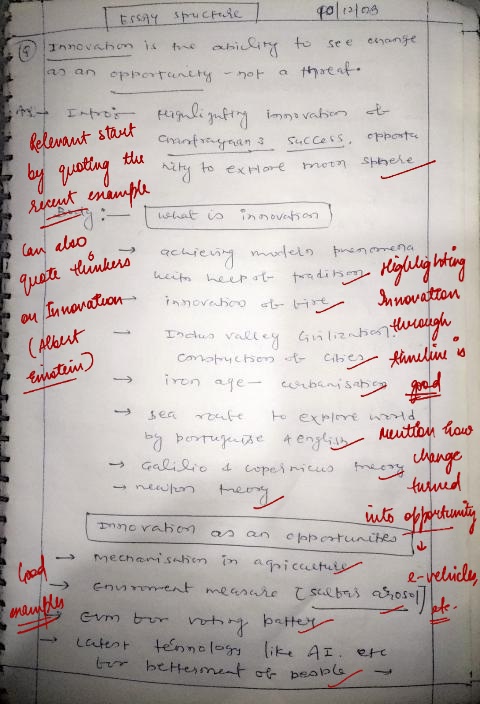 Essay structure
10/12/023
Q Innovation is the ability to see change
as an opportunity - not a threat.
Ans → Intro:- Highlighting innovation of
chandrayaan 3 success. opportu
nity to explore moon sphere
Relevant start
by quoting the
recent example
Body :- what is innovation
can also
quote thinkers
on Innovation
(Albert
Einstein)
→ achieving modern phenomena
with help of tradition
→ innovation of fire
→ Indus valley Civilization.
construction of cities
→ iron age - urbanisation
→ sea route to explore world
by portuguise & english
→ Galilio & copernicus theory
→ newton theory
Highlighting
Innovation
through
timeline is
good
Mention how
change
turned
into opportunity
↓
e-vehicles,
etc.
Innovation as an opportunites
→ Mechanisation in agriculture
→ Enviroment measure [salbar airosol]
→ Evm for voting patter
→ Latest technology like AI. etc
for betterment of people →
Good
examples